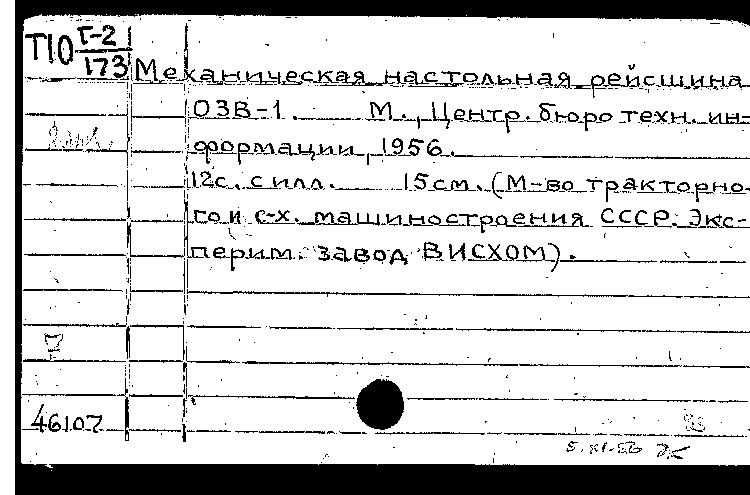 Т10 Г-2
173
Механическая настольная рейсшина
ОЗВ-1. М., Центр. бюро техн. ин-
формации, 1956.
12с. с илл. 15см. (М-во тракторно-
го и с-х. машиностроения СССР. Экс-
перим. завод ВИСХОМ).
46107
5.XI-56